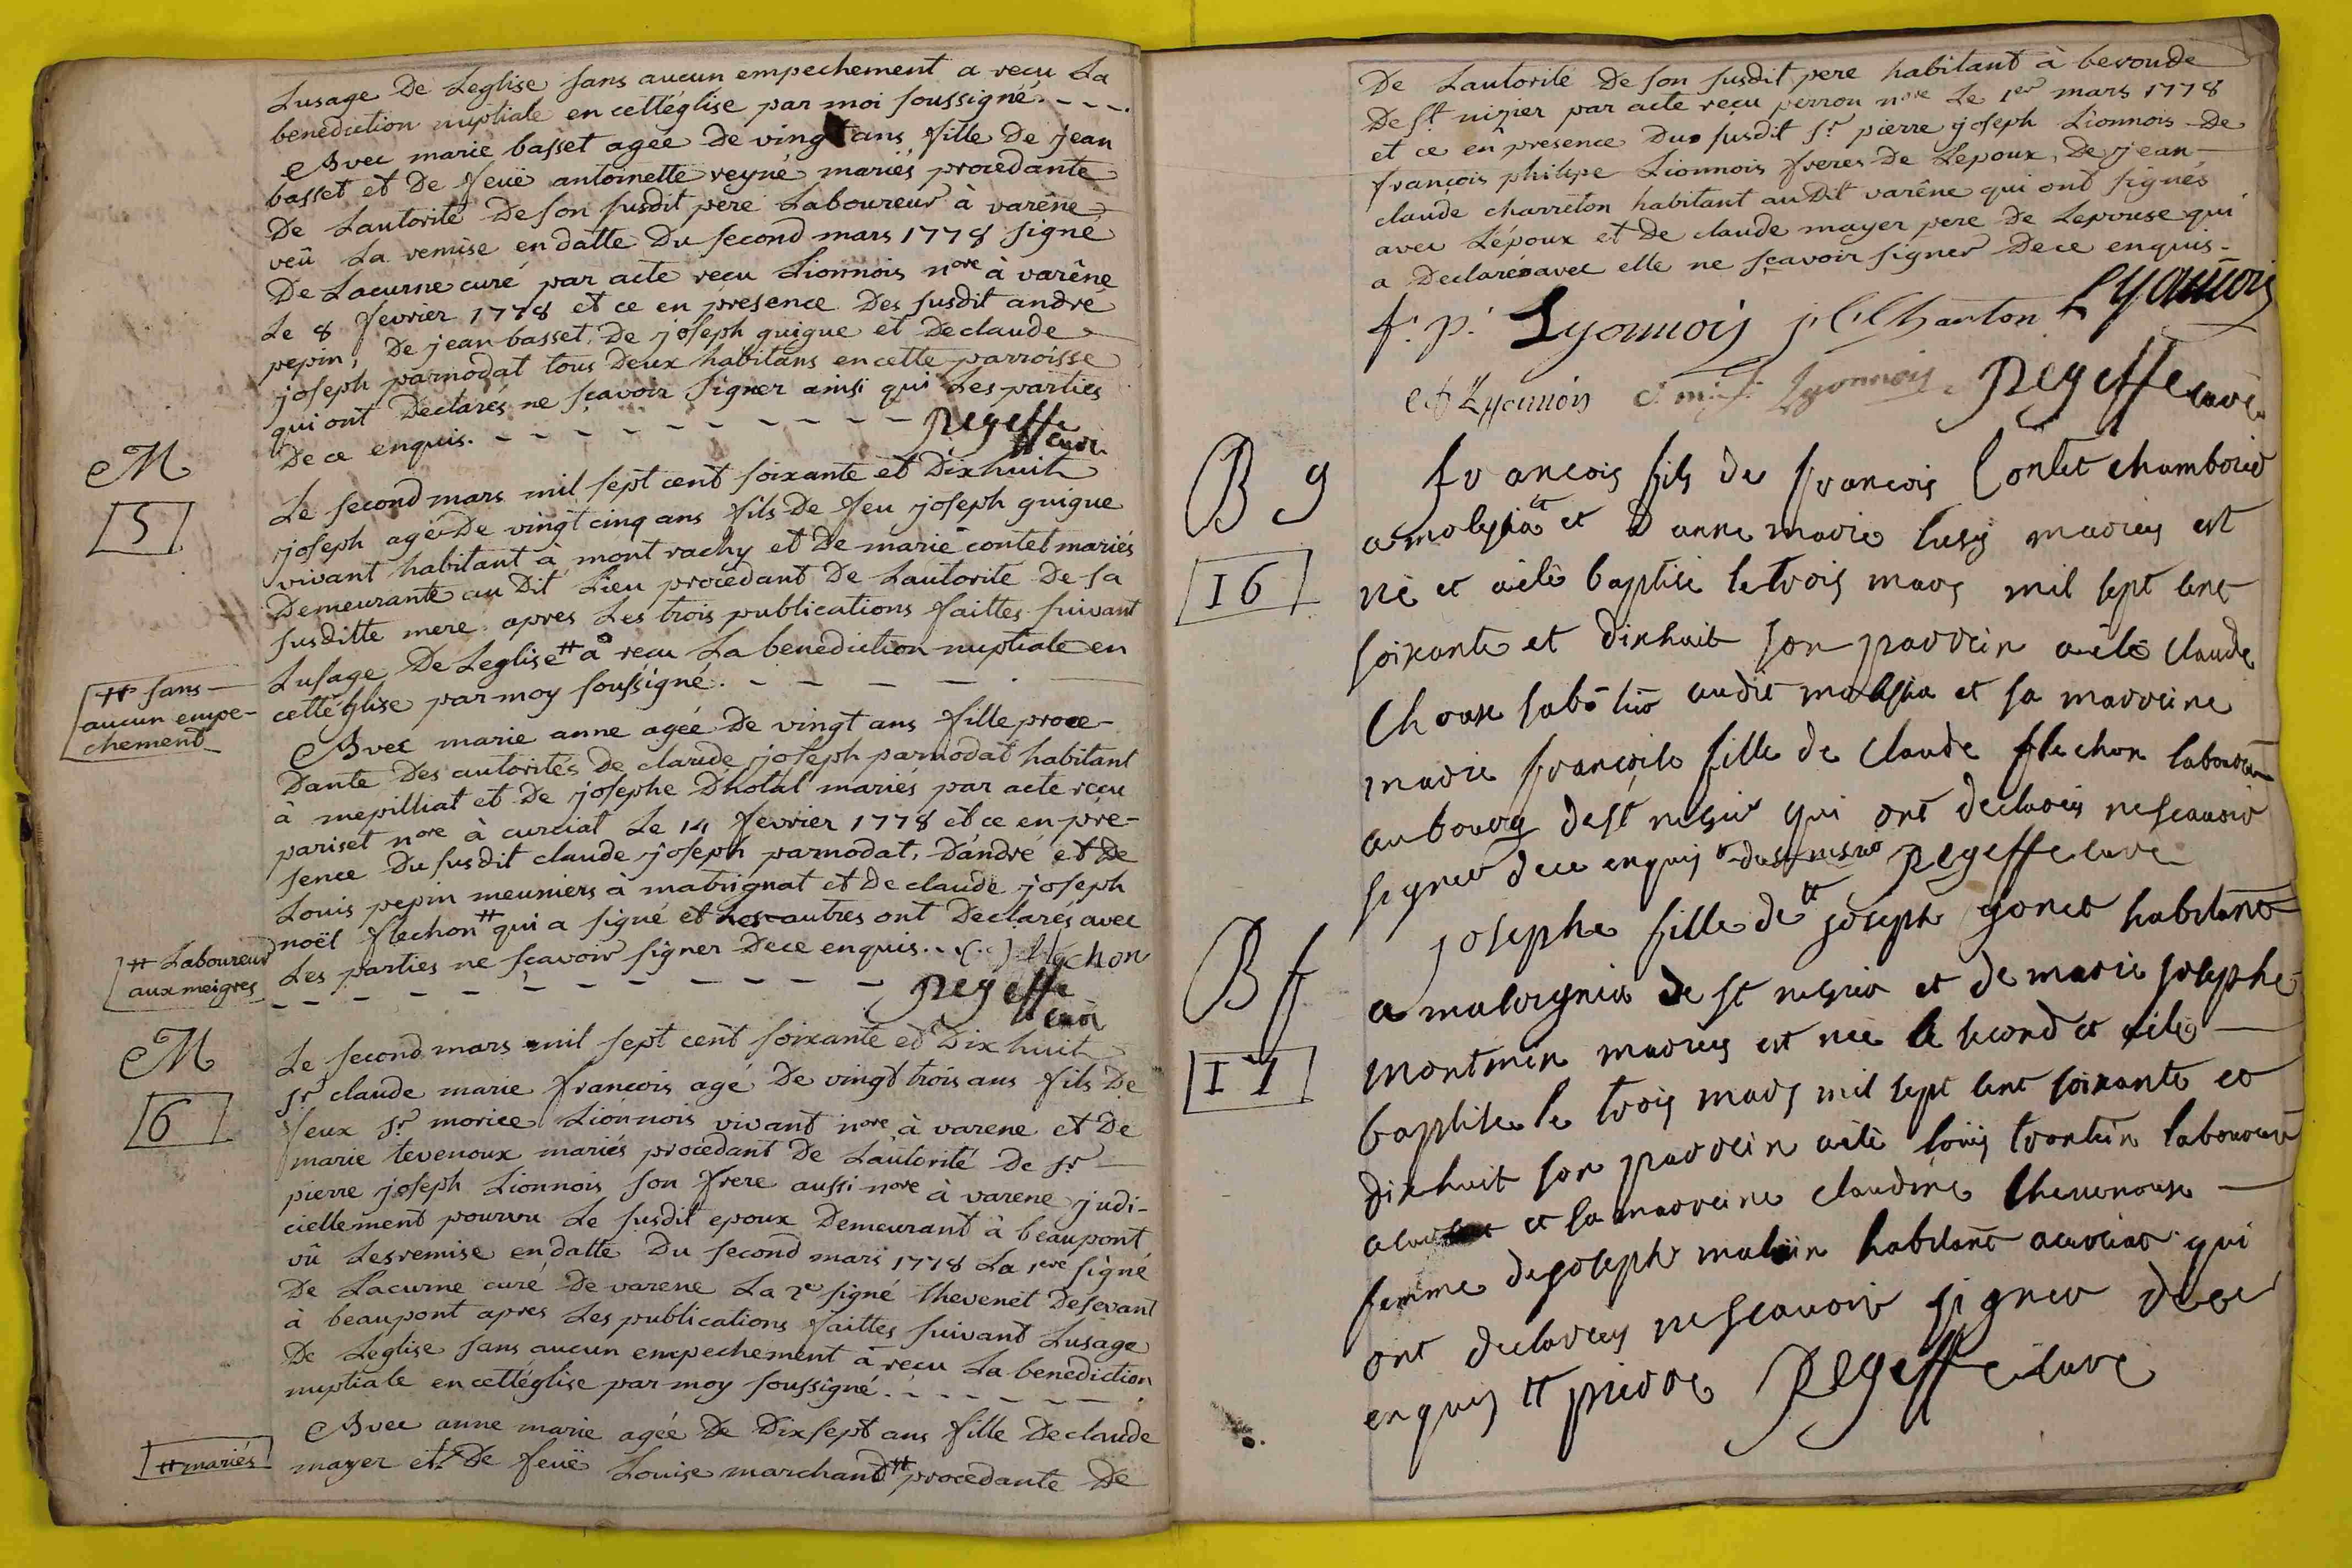 Lusage De Leglise sans aucun empechement a recu La
benediction nuptiale en cetteglise par moi soussigné.
Avec marie basset agée De vingt ans fille De jean
basset et De feuë antoinette reyné mariés procedante
De Lautorité De son susdit pere Laboureur à varêne
veü La remise en datte Du second mars 1778 signé
De Lacurne curé par acte recu Lionnois nore à varêne
Le 8 fevrier 1778 et ce en presence Des susdit andré
pepin, De jean basset, De joseph guigue et De claude
joseph parnodat tous Deux habitans en cette parroisse
qui ont Declarés ne sçavoir signer ainsi qui Les parties
De ce enquis. Regeffe curé
M
5
Le second mars mil sept cent soixante et Dixhuit
joseph agé De vingt cinq ans fils De feu joseph guigue
vivant habitant à mont rachy et De marie contet mariés
Demeurante au Dit Lieu procedant De Lautorite De sa
susditte mere apres Les trois publications faittes suivant
Lusage De Leglise # a recu La benediction nuptiale en
cettéglise par moy soussigné.
# sans
aucun empe-
chement
Avec marie anne agée De vingt ans fille proce-
Dante Des autorités De claude joseph parnodat habitant
à mepilliat et De josephe Dhotal mariés par acte recu
pariset nore à curciat Le 14 fevrier 1778 et ce en pré-
sence Du susdit claude joseph parnodat, D'andré et De
Louis pepin meuniers à matrignat et De claude joseph
noël flechon # qui a signé et Les autres ont Declarés avec
Les parties ne sçavoir signer De ce enquis. flechon
Regeffe curé
# Laboureur
aux meigres
M
6
Le second mars mil sept cent soixante et Dix huit
sr claude marie francois agé De vingt trois ans fils De
feux sr morice Lionnois vivant nore à varene et De
marie tevenoux mariés procedant De Lautorité De sr
pierre joseph Lionnois son frere aussi nore à varene judi-
ciellement pourvu Le susdit epoux Demeurant à beaupont
vû Les remise en datte Du second mars 1778 La 1ere signé
De Lacurne curé De varene La 2e signé thevenet Desevant
à beaupont apres Les publications faittes suivant Lusage
De Leglise sans aucun empechement à recu La benediction
nuptiale en cettéglise par moy soussigné.
Avec anne marie agée De Dixsept ans fille De claude
mayer et De feuë Louise marchand # procedante De
# mariés
De Lautorite De son susdit pere habitant à beroude
De St nizier par acte reçu perron nore Le 1er mars 1778
et ce en presence Du susdit sr pierre joseph Lionnois De
françois philipe Lionnois freres De Lepoux, De jean
claude charreton habitant au Dit varêne qui ont signés
avec Lépoux et De claude mayer pere De Lepouse qui
a Declaré avec elle ne sçavoir signer De ce enquis.
f. p. Lyonnois Charton Lyonnois
Lyonnois c. m. f. Lyonnois Regeffe curé
B g
16
francois fils de francois Contet
et D anne marie lusy maries est
né et aété baptisé le trois mars mil sept cent
soixante et dixhuit son parrein aété claude
audit et sa marreine
marie françoise fille de claude flechon laboureur
au bourg de st nisier qui ont declarés ne scavoir
signer dece enquis Regeffe curé
B f
17
josephe fille de # joseph gonet habitant
a de st nisier et de marie josephe
montmin maries est née le second et aété
baptisée le trois mars mil sept cent soixante et
dixhuit son parrein aété loüis trontin laboureur
et la marreine claudine thevenoux
femme de joseph habitant acurciat qui
ont declarés ne scavoir signer dece
enquis # pierre Regeffe curé